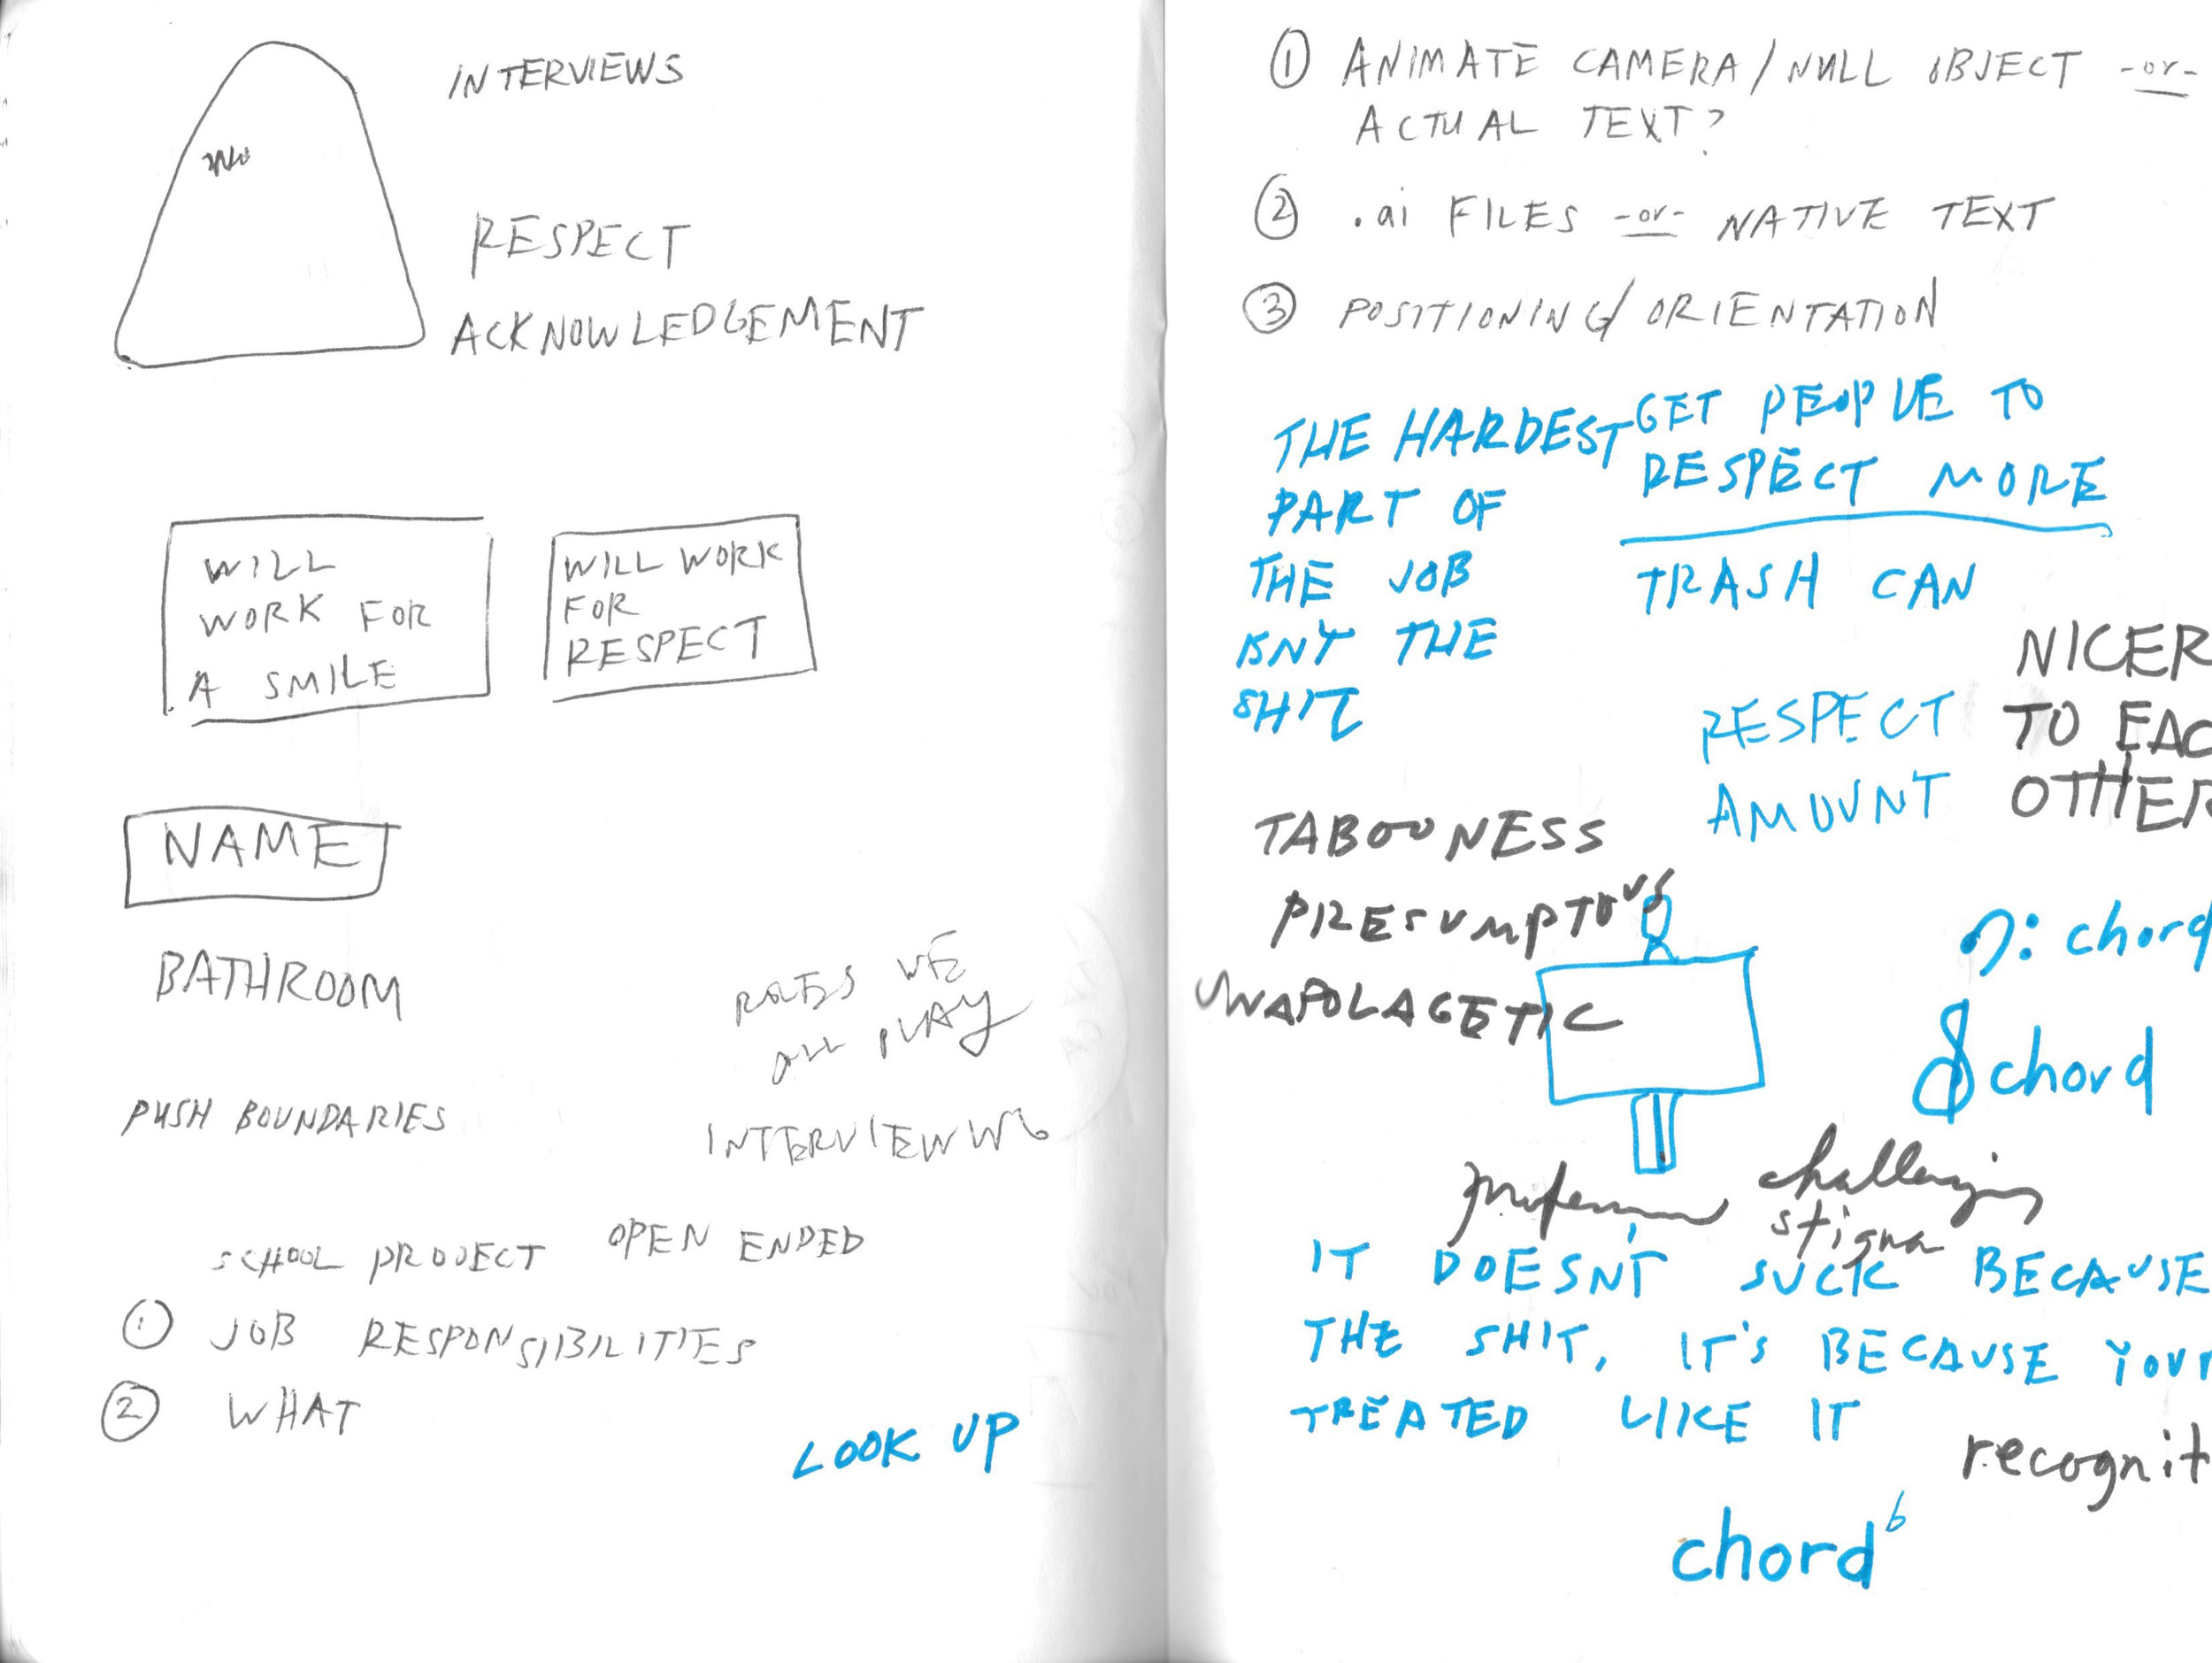 INTERVIEWS
RESPECT
ACKNOWLEDGEMENT
WILL
WORK FOR
A SMILE
WILL WORK
FOR
RESPECT
NAME
BATHROOM
ROLES WE
ALL PLAY
PUSH BOUNDARIES
INTERVIEWING
SCHOOL PROJECT OPEN ENDED
① JOB RESPONSIBILITIES
② WHAT
LOOK UP
① ANIMATE CAMERA/NULL OBJECT -or-
ACTUAL TEXT?
② .ai FILES -or- NATIVE TEXT
③ POSITIONING/ORIENTATION
THE HARDEST
PART OF
THE JOB
ISN'T THE
SHIT
GET PEOPLE TO
RESPECT MORE
TRASH CAN
RESPECT
AMOUNT
NICER
TO EAC
OTHER
TABOONESS
PRESUMPTOUS
UNAPOLAGETIC
: chord
chord
challenging
stigma
IT DOESN'T SUCK BECAUSE
THE SHIT, IT'S BECAUSE YOUR
TREATED LIKE IT
recognit
chord